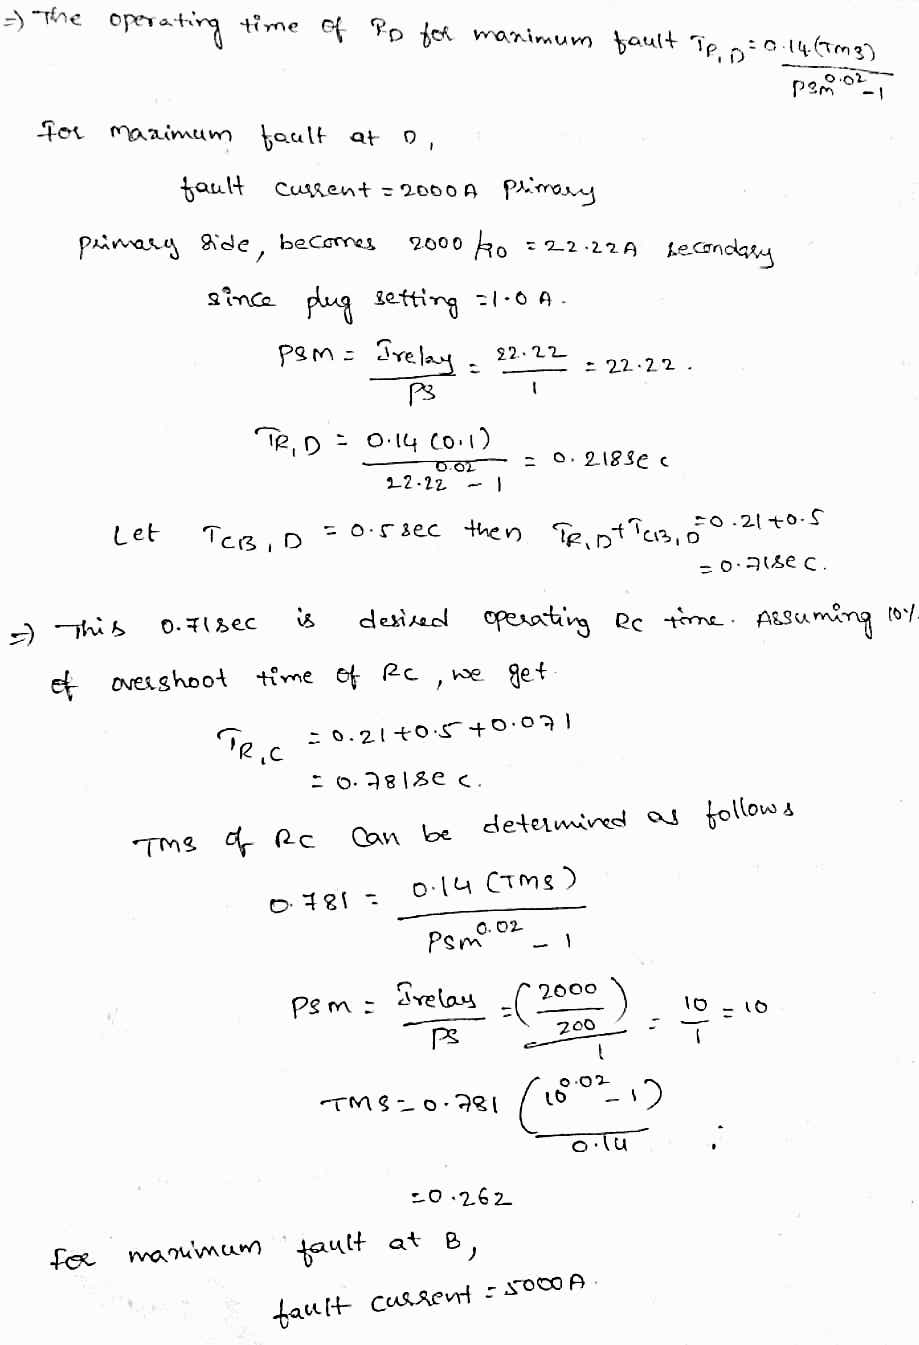 =) The operating time of RD for maximum fault TR,D = 0.14(TMS) / PSM^0.02 - 1
For maximum fault at D,
fault current = 2000A primary
primary side, becomes 2000/90 = 22.22A secondary
since plug setting = 1.0 A.
PSM = Irelay / PS = 22.22 / 1 = 22.22.
TR,D = 0.14 (0.1) / 22.22^0.02 - 1 = 0.218sec
Let TCB,D = 0.5 sec then TR,D + TCB,D = 0.21 + 0.5
= 0.71sec.
=) This 0.71sec is desired operating RC time. Assuming 10%
of overshoot time of RC, we get
TR,C = 0.21 + 0.5 + 0.071
= 0.781sec.
TMS of RC can be determined as follows
0.781 = 0.14 (TMS) / PSM^0.02 - 1
PSM = Irelay / PS = (2000 / 200) / 1 = 10 / 1 = 10
TMS = 0.781 (10^0.02 - 1) / 0.14
= 0.262
for maximum fault at B,
fault current = 5000A.